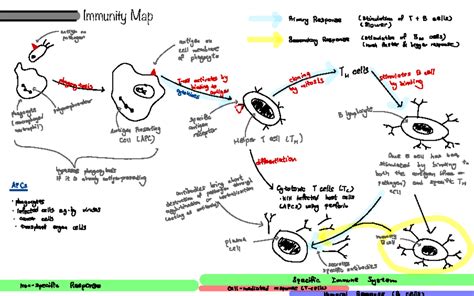 Immunity Map
Primary Response (Stimulation of T + B cells)
(slower)
Secondary Response (stimulation of BM cells)
(much faster & bigger response)
antigen on
pathogen
antigen on cell
membrane
of phagocyte
phagocytosis
T-cell activates by
binding to
antigen
cytokines
cloning
by mitosis
TH cells
stimulates B cell
by binding
phagocyte
Antigen Presenting
Cell (APC)
specific
antigen
receptor
Helper T cell (TH)
B lymphocyte
Once B cell has been
stimulated by binding to
both the antigen
pathogen) and specific TH
cell
differentiation
APCs
• phagocytes
• infected cells eg. by viruses
• cancer cells
• transplant organ cells
Cytotoxic T cells (TC)
• kill infected host cells
(APCs) using perforin
antibodies bring about
destruction of pathogen through
agglutination
plasma
cell
secretes
specific antibodies
memory
B cell
Non-Specific Response
Specific Immune System
Cell-mediated response (T-cells)
Humoral Response (B cells)